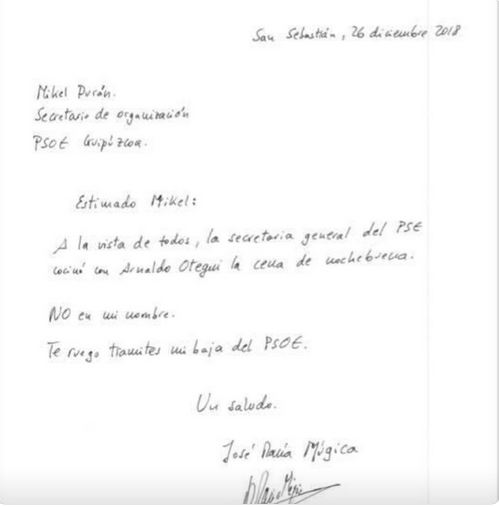 San Sebastián, 26 diciembre 2018
Mikel Durán.
Secretario de organización
PSOE Guipúzcoa.
Estimado Mikel:
A la vista de todos, la secretaria general del PSE
cocinó con Arnaldo Otegui la cena de nochebuena.
NO en mi nombre.
Te ruego tramites mi baja del PSOE.
Un saludo.
José María Múgica